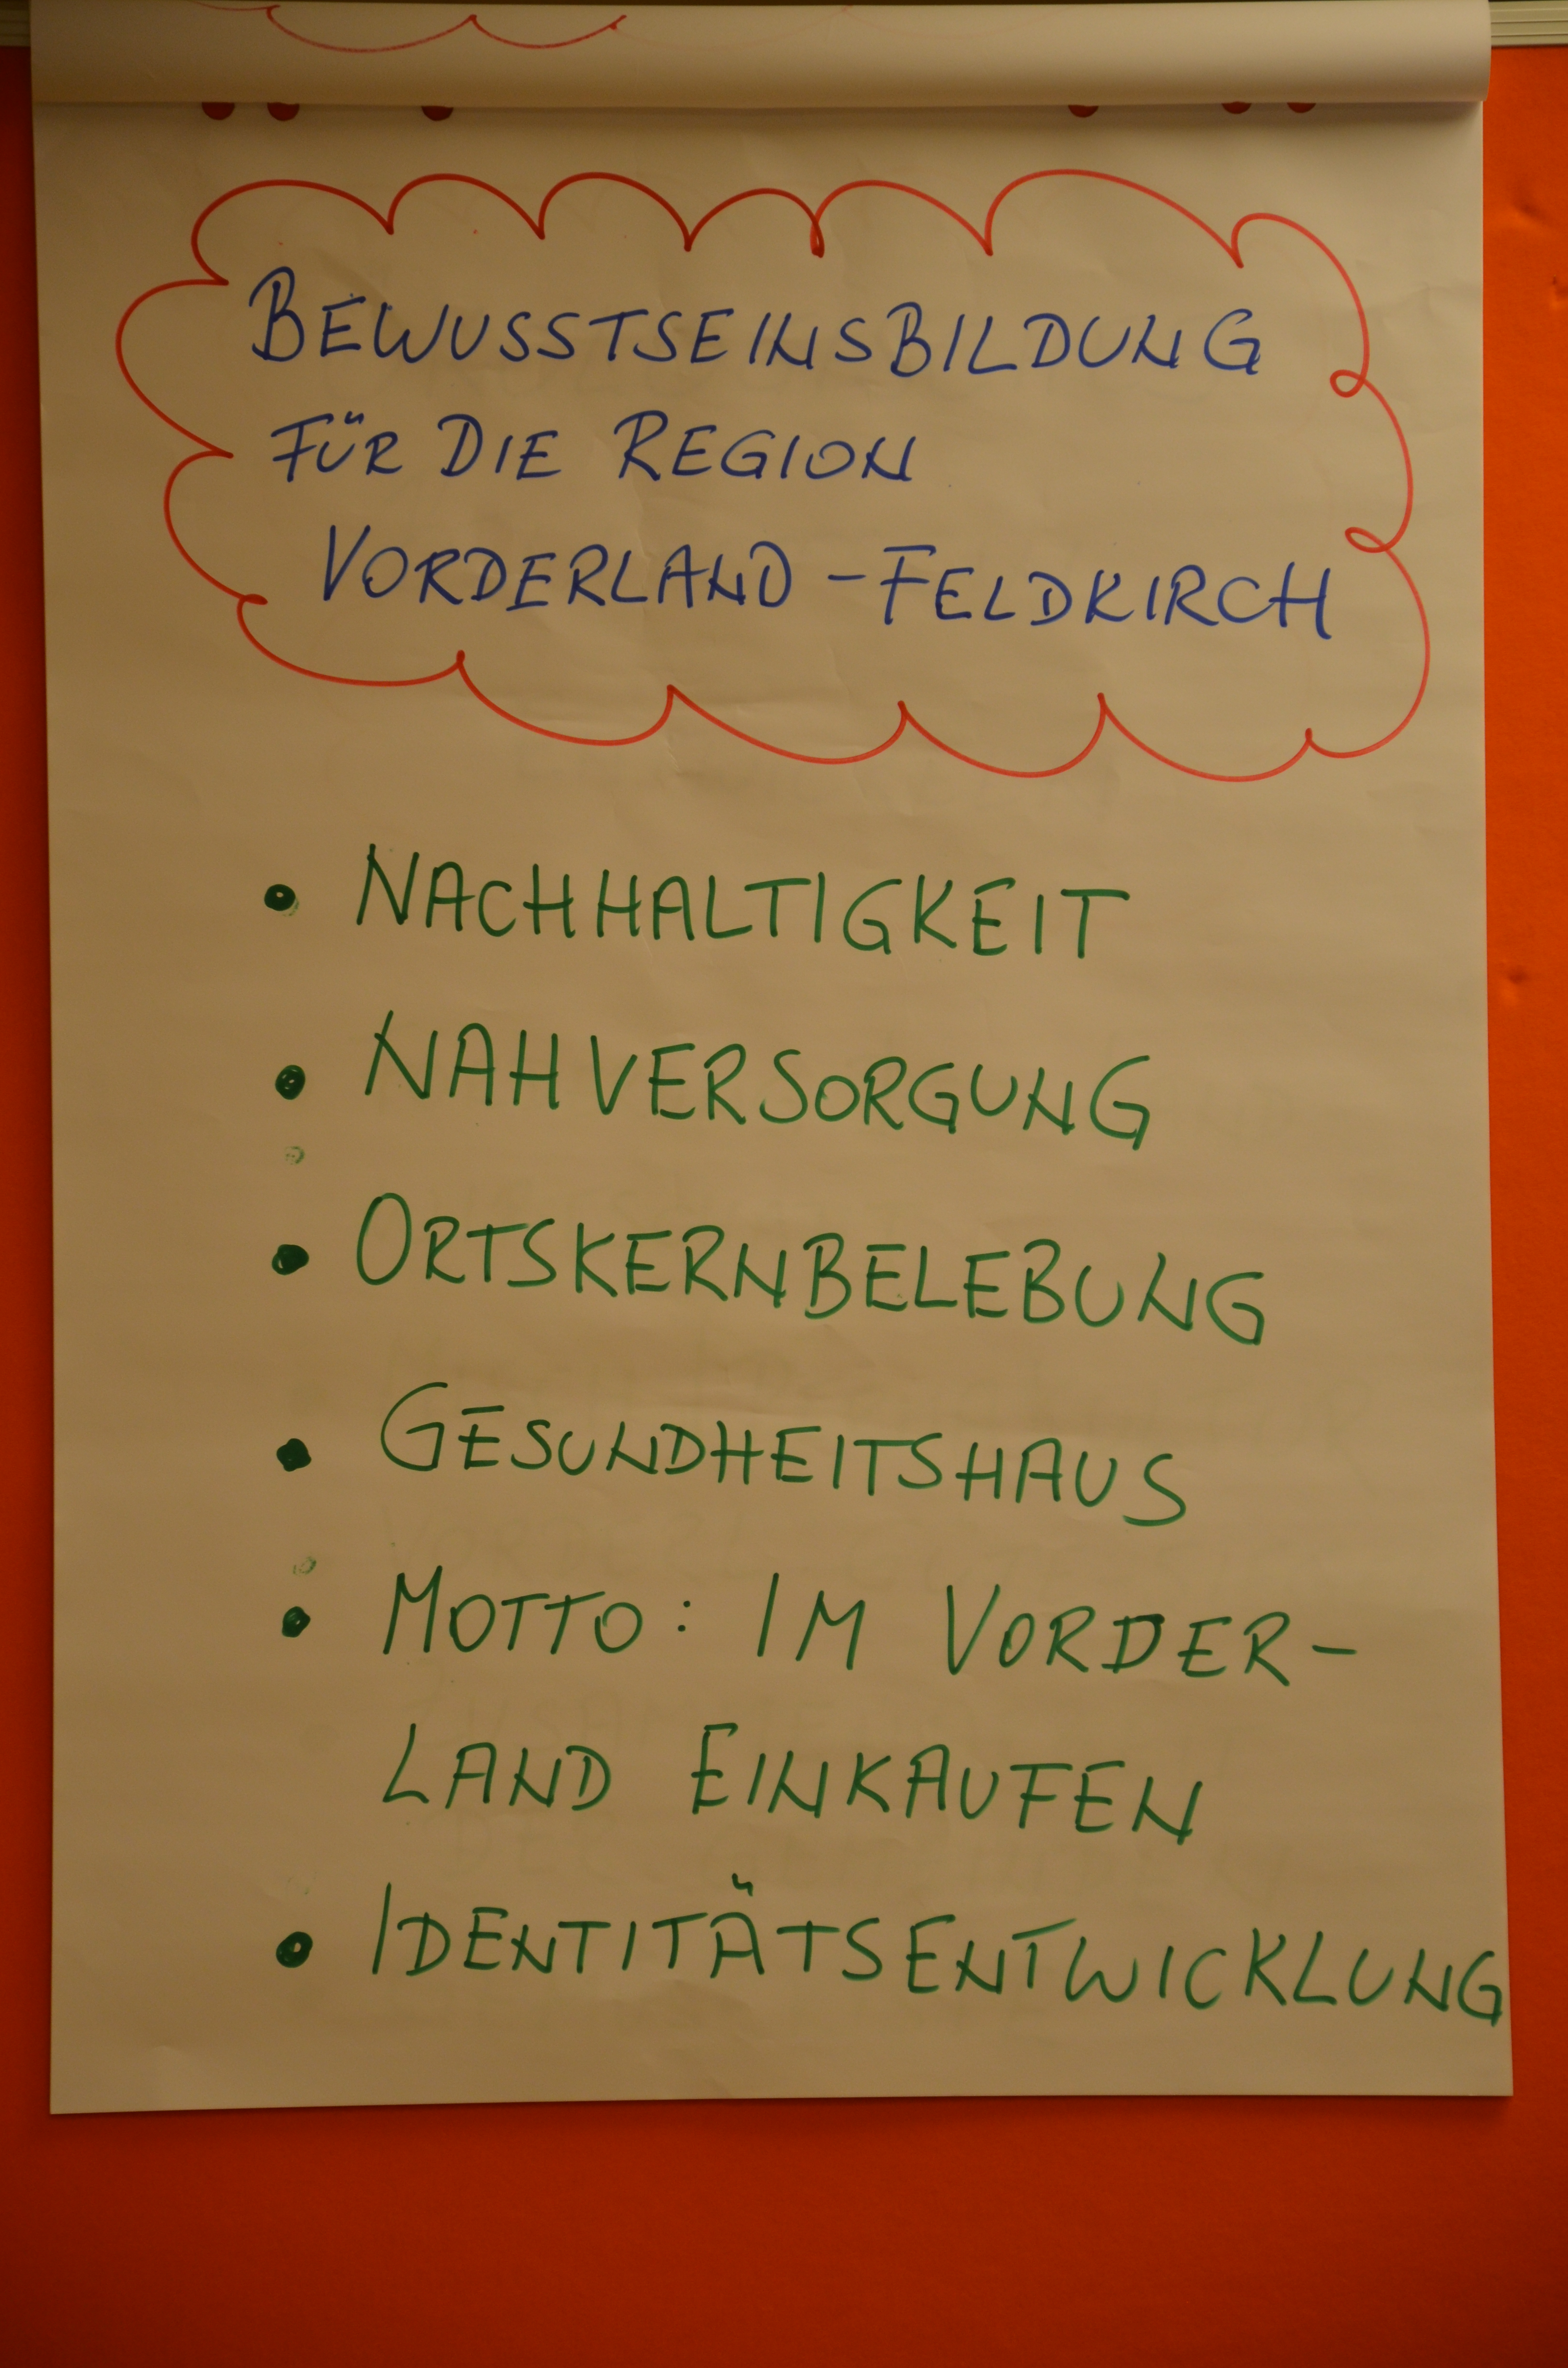 BEWUSSTSEINSBILDUNG
FÜR DIE REGION
VORDERLAND-FELDKIRCH
• NACHHALTIGKEIT
• NAHVERSORGUNG
• ORTSKERNBELEBUNG
• GESUNDHEITSHAUS
• MOTTO: IM VORDER-
LAND EINKAUFEN
• IDENTITÄTSENTWICKLUNG